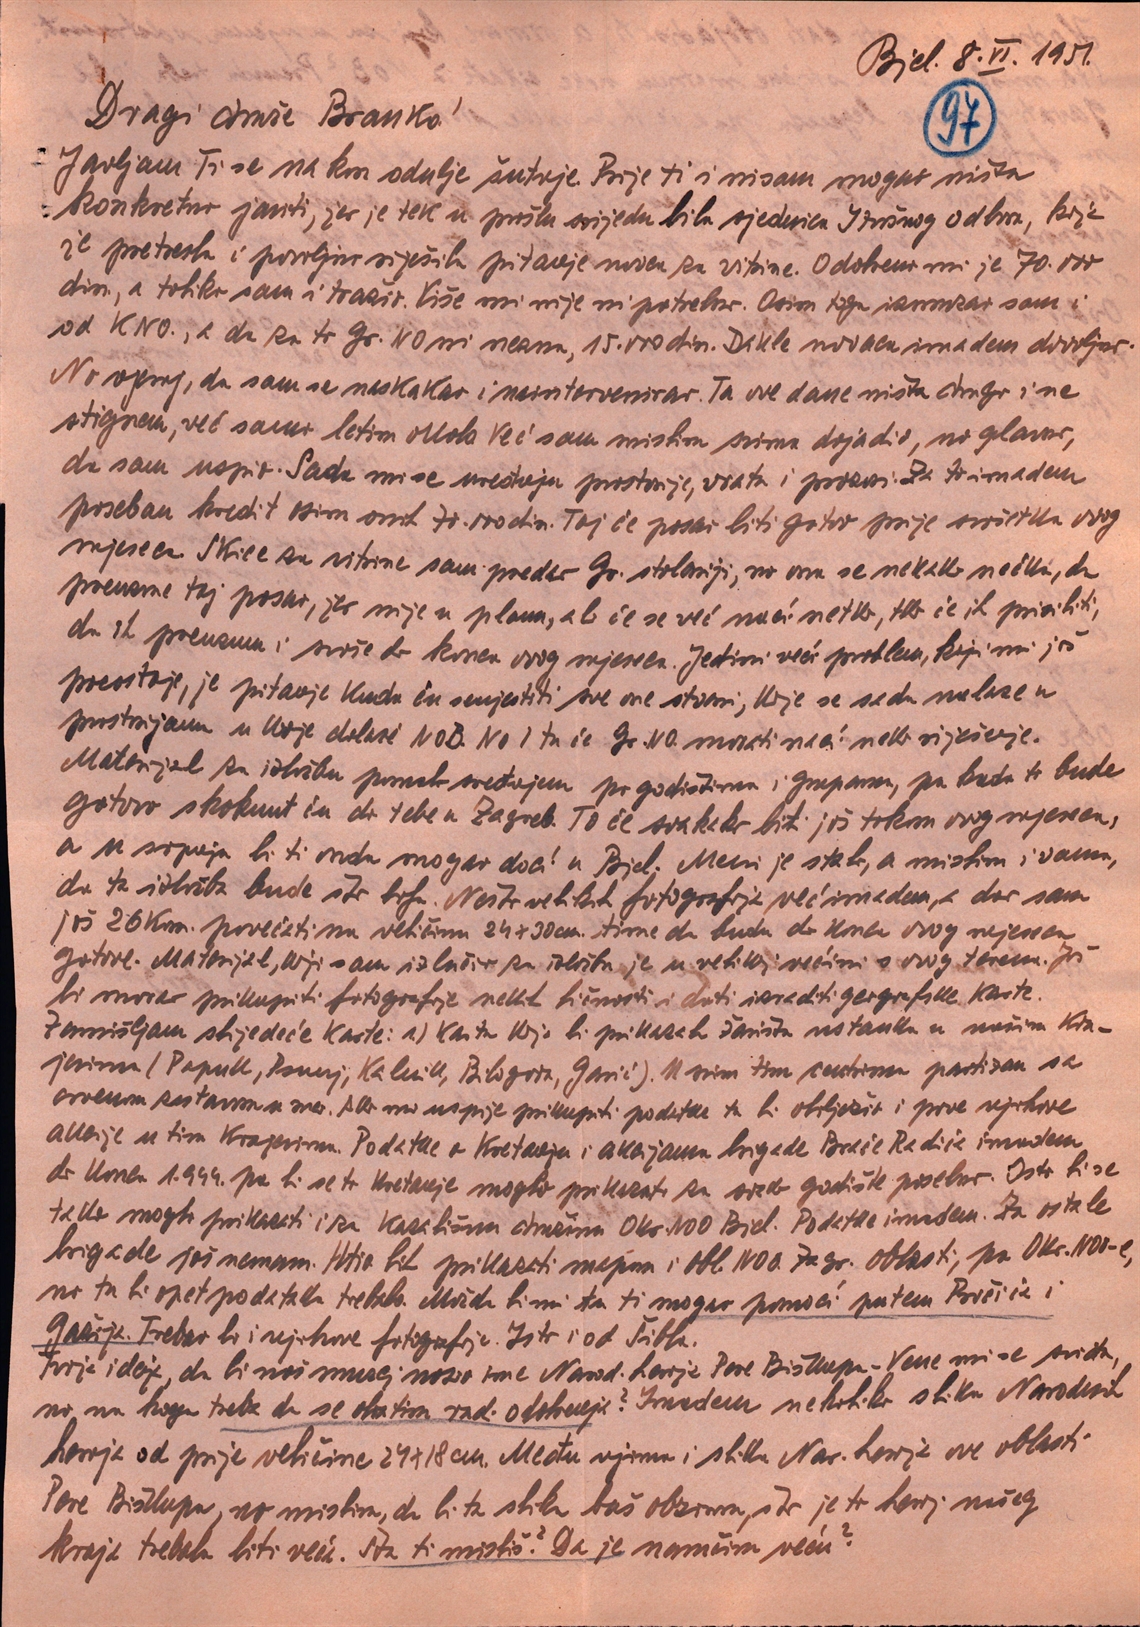 Bjel. 8. VI. 1951.
97
Dragi druže Branko!
Javljam Ti se nakon odulje šutnje. Prije ti i nisam mogao ništa
konkretno javiti, jer je tek u prošlu srijedu bila sjednica Izvršnog odbora, koja
je pretresla i povoljno riješila pitanje novca za vitrine. Odobreno mi je 70.000
din., a toliko sam i tražio. Više mi nije ni potrebno. Osim toga sam i
od KNO., a da za to Gr. NO ni nezna, 15.000 din. Dakle novaca imadem dovoljno.
No vjeruj, da sam se naskakao i naintervenirao. Ta ove dane ništa drugo i ne
stignem, već samo letim okolo. Već sam mislim svima dojadio, no glavno,
da sam uspio. Sada mi se uređuju prostorije, vrata i prozori. Za to imadem
poseban kredit osim onih 70.000 din. Taj će posao biti gotov prije svršetka ovog
mjeseca. Skice za vitrine sam predao Gr. stolariji, no ona se nekako nećka, da
preuzme taj posao, jer nije u planu, al će se već naći netko, tko će ih prisiliti,
da ih preuzmu i svrše do konca ovog mjeseca. Jedini veći problem, koji mi još
preostaje, je pitanje kuda ću smjestiti sve one stvari, koje se sada nalaze u
prostorijama u koje dolazi NOB. No i tu će Gr. NO. morati naći neko riješenje.
Materijal za izložbu pomalo sređujem po godištima i grupama, pa kada to bude
gotovo skoknut ću do tebe u Zagreb. To će svakako biti još tokom ovog mjeseca,
a u srpnju bi ti onda mogao doći u Bjel. Meni je stalo, a mislim i vama,
da ta izložba bude što bolja. Nešto velikih fotografija već imadem, a dao sam
još 26 kom. povećati na veličinu 24x30 cm. time da budu do konca ovog mjeseca
gotove. Materijal, koji sam izlučio za izložbu je u velikoj većini s ovog terena. Još
bi morao prikupiti fotografije nekih ličnosti i dati izraditi geografske karte.
Zamišljam slijedeće karte: 1) Karta koja bi prikazala žarišta ustanka u našim kra-
jevima (Papuk, Psunj, Kalnik, Bilogora, Garić). U svim tim centrima partizan sa
crvenom zastavom u ruci. Ako mi uspije prikupiti podatke tu bi obilježio i prve njihove
akcije u tim krajevima. Podatke o kretanju i akcijama brigade Braće Radića imadem
do konca 1.944. pa bi se to kretanje moglo prikazati za svako godište posebno. Isto bi se
tako moglo prikazati i za Kazališnu družinu Okr. NOO Bjel. Podatke imadem. Za ostale
brigade još nemam. Htio bih prikazati mapom i obl. NOO. Zagr. oblasti, pa Okr. NOO-e,
no tu bi opet podataka trebalo. Možda bi mi tu ti mogao pomoći putem i
Trebao bi i njihove fotografije. Isto i od Šibla.
Tvoja ideja, da bi naš muzej nosio ime Narod. heroja Pere Biškupa-Vene mi se sviđa,
no na koga treba da se obratim radi odobrenja? Imadem nekoliko slika Narodnih
heroja od prije veličine 24x18 cm. Među njima i sliku Nar. heroja ove oblasti
Pere Biškupa, no mislim, da bi ta slika baš obzirom, što je to heroj našeg
kraja trebala biti veća. Šta ti misliš? Da je naručim veću?